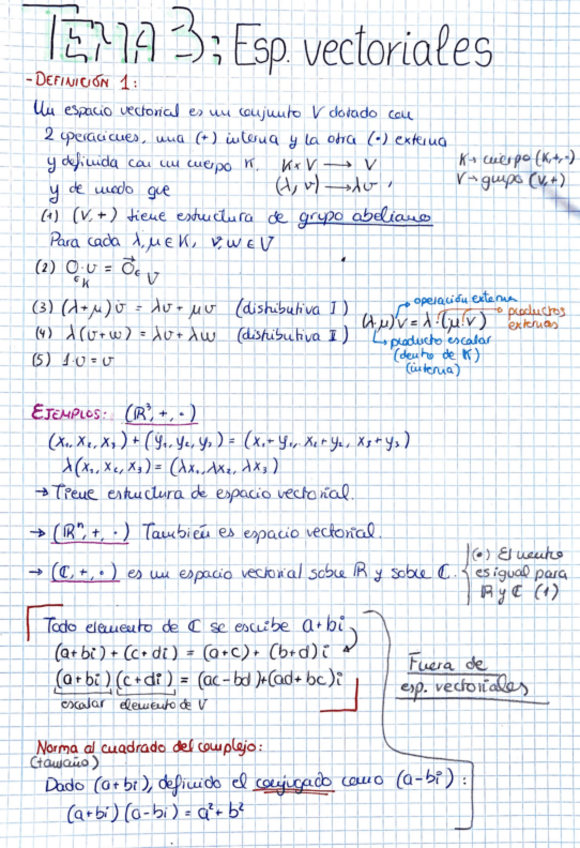 TEMA 3: Esp. vectoriales
- DEFINICIÓN 1:
Un espacio vectorial es un conjunto V dotado con
2 operaciones, una (+) interna y la otra (•) externa
y definida con un cuerpo K. K×V ⟶ V
(λ, v) ⟶ λv
K→ cuerpo (K,+,·)
V→ grupo (V,+)
y de modo que
(1) (V,+) tiene estructura de grupo abeliano
Para cada λ,μ ∈ K, v,w ∈ V
(2) 0·v = 0⃗ ∈ V
∈K
(3) (λ+μ)v = λv + μv (distributiva I)
(4) λ(v+w) = λv + λw (distributiva II)
(5) 1·v = v
operación externa
(λ·μ)v = λ·(μ·v) productos externos
producto escalar
(dentro de K)
(interna)
EJEMPLOS: (ℝ³, +, ·)
(x₁, x₂, x₃) + (y₁, y₂, y₃) = (x₁+y₁, x₂+y₂, x₃+y₃)
λ(x₁, x₂, x₃) = (λx₁, λx₂, λx₃)
→ Tiene estructura de espacio vectorial.
→ (ℝⁿ, +, ·) También es espacio vectorial.
→ (ℂ, +, ·) es un espacio vectorial sobre ℝ y sobre ℂ.
(•) El neutro
es igual para
ℝ y ℂ (1)
Todo elemento de ℂ se escribe a+bi
(a+bi) + (c+di) = (a+c) + (b+d)i
(a+bi)(c+di) = (ac-bd)+(ad+bc)i
escalar elemento de V
Fuera de
esp. vectoriales
Norma al cuadrado del complejo:
(tamaño)
Dado (a+bi), definido el conjugado como (a-bi):
(a+bi)(a-bi) = a²+b²